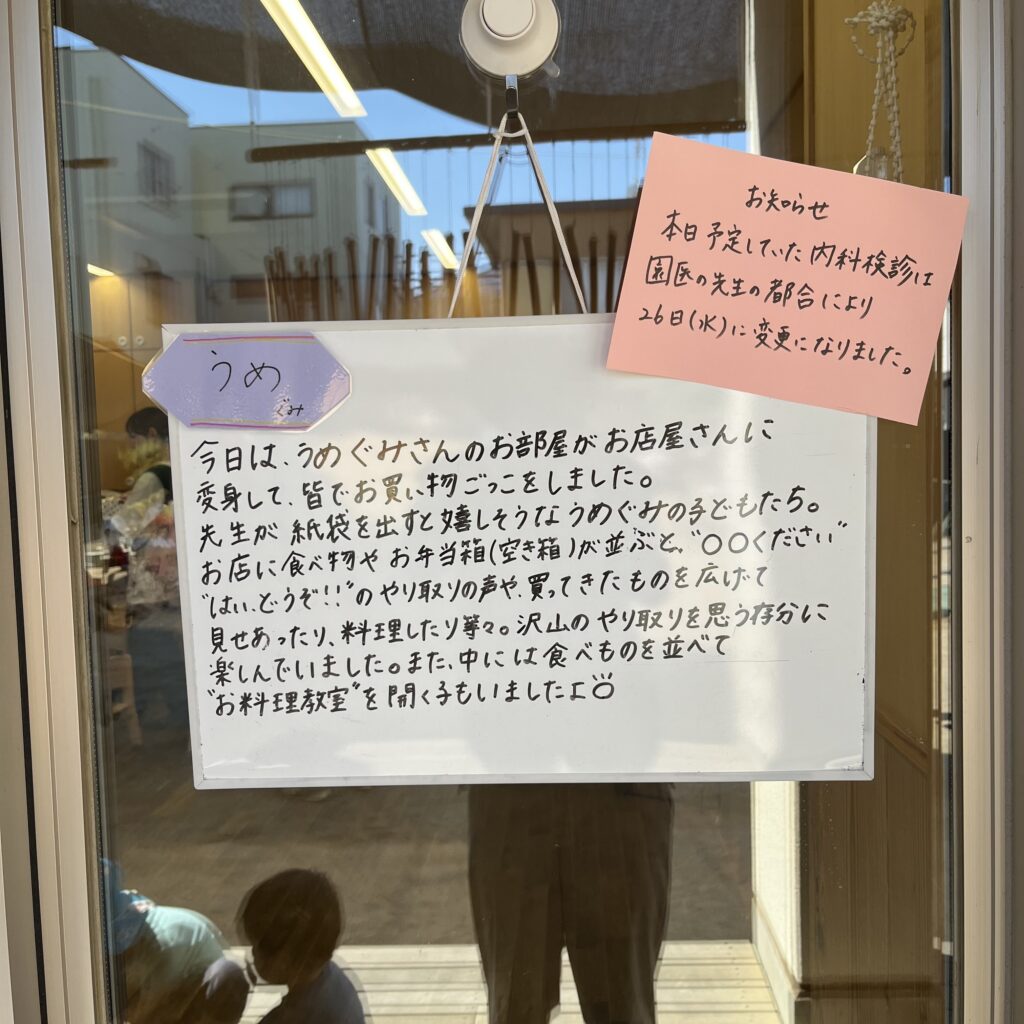 お知らせ
本日予定していた内科検診は
園医の先生の都合により
26日(水)に変更になりました。
うめ
ぐみ
今日は、うめぐみさんのお部屋がお店屋さんに
変身して、皆でお買い物ごっこをしました。
先生が紙袋を出すと嬉しそうなうめぐみの子どもたち。
お店に食べ物やお弁当箱(空き箱)が並ぶと、"〇〇ください"
"はい、どうぞ!!"のやり取りの声や、買ってきたものを広げて
見せあったり、料理したり等々。沢山のやり取りを思う存分に
楽しんでいました。また、中には食べものを並べて
"お料理教室"を開く子もいましたよ